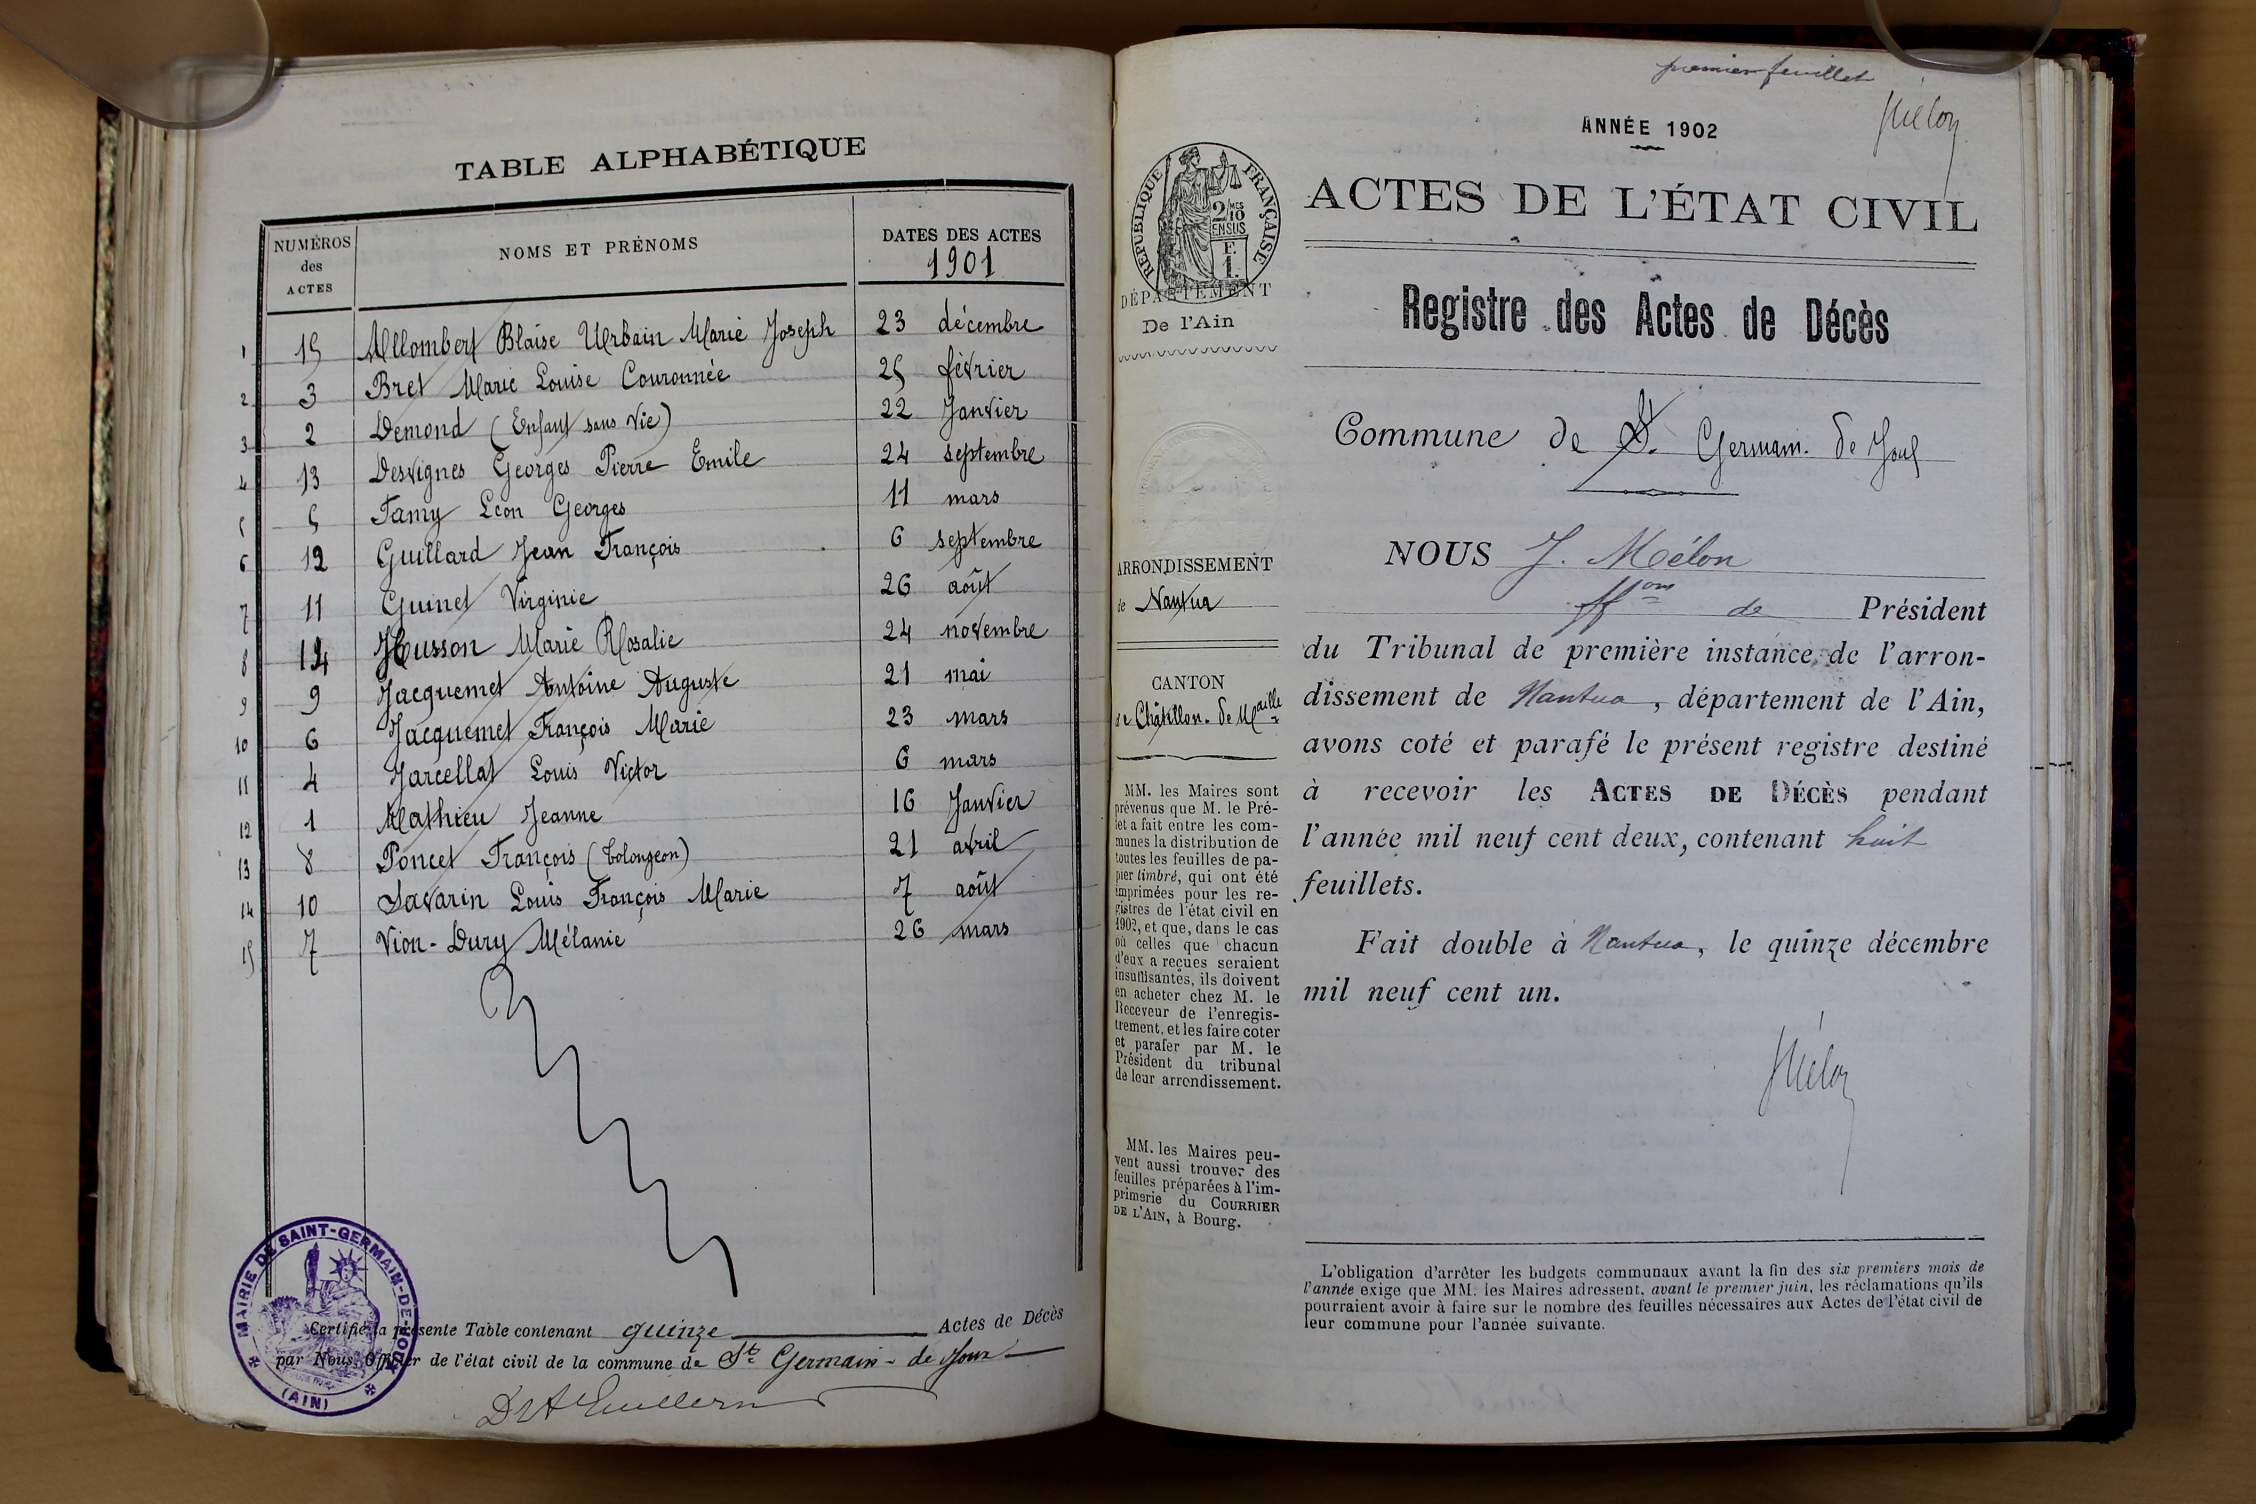 TABLE ALPHABÉTIQUE
NUMÉROS des ACTES NOMS ET PRÉNOMS DATES DES ACTES 1901
1 15 Allombert Blaise Urbain Marie Joseph 23 décembre
2 3 Bret Marie Louise Couronnée 25 février
3 2 Demond (Enfant sans vie) 22 Janvier
4 13 Desvignes Georges Pierre Emile 24 septembre
5 5 Famy Léon Georges 11 mars
6 12 Guillard Jean François 6 septembre
7 11 Guinet Virginie 26 août
8 14 Husson Marie Rosalie 24 novembre
9 9 Jacquemet Antoine Auguste 21 mai
10 6 Jacquemet François Marie 23 mars
11 4 Jarcellat Louis Victor 6 mars
12 1 Mathieu Jeanne 16 Janvier
13 8 Poncet François (Tolongeon) 21 avril
14 10 Savarin Louis François Marie 7 août
15 7 Vion-Dury Mélanie 26 mars
Certifié la présente Table contenant quinze Actes de Décès
par Nous Officier de l'état civil de la commune de St Germain-de Joux
MAIRIE DE SAINT-GERMAIN-DE-JOUX
(AIN)
premier feuillet
Mélon
ANNÉE 1902
RÉPUBLIQUE FRANÇAISE
2/10
MES
EN SUS
F.
1.
ACTES DE L'ÉTAT CIVIL
DÉPARTEMENT
De l'Ain
Registre des Actes de Décès
Commune de St. Germain. de Joux
ARRONDISSEMENT
de Nantua
CANTON
de Châtillon-de Maille
MM. les Maires sont
prévenus que M. le Pré-
fet a fait entre les com-
munes la distribution de
toutes les feuilles de pa-
pier timbré, qui ont été
imprimées pour les re-
gistres de l'état civil en
1902, et que, dans le cas
où celles que chacun
d'eux a reçues seraient
insuffisantes, ils doivent
en acheter chez M. le
Receveur de l'enregis-
trement, et les faire coter
et parafer par M. le
Président du tribunal
de leur arrondissement.
MM. les Maires peu-
vent aussi trouver des
feuilles préparées à l'im-
primerie du COURRIER
DE L'AIN, à Bourg.
NOUS J. Mélon
ffons de Président
du Tribunal de première instance de l'arron-
dissement de Nantua, département de l'Ain,
avons coté et parafé le présent registre destiné
à recevoir les ACTES DE DÉCÈS pendant
l'année mil neuf cent deux, contenant huit
feuillets.
Fait double à Nantua, le quinze décembre
mil neuf cent un.
Mélon
L'obligation d'arrêter les budgets communaux avant la fin des six premiers mois de
l'année exige que MM. les Maires adressent, avant le premier juin, les réclamations qu'ils
pourraient avoir à faire sur le nombre des feuilles nécessaires aux Actes de l'état civil de
leur commune pour l'année suivante.